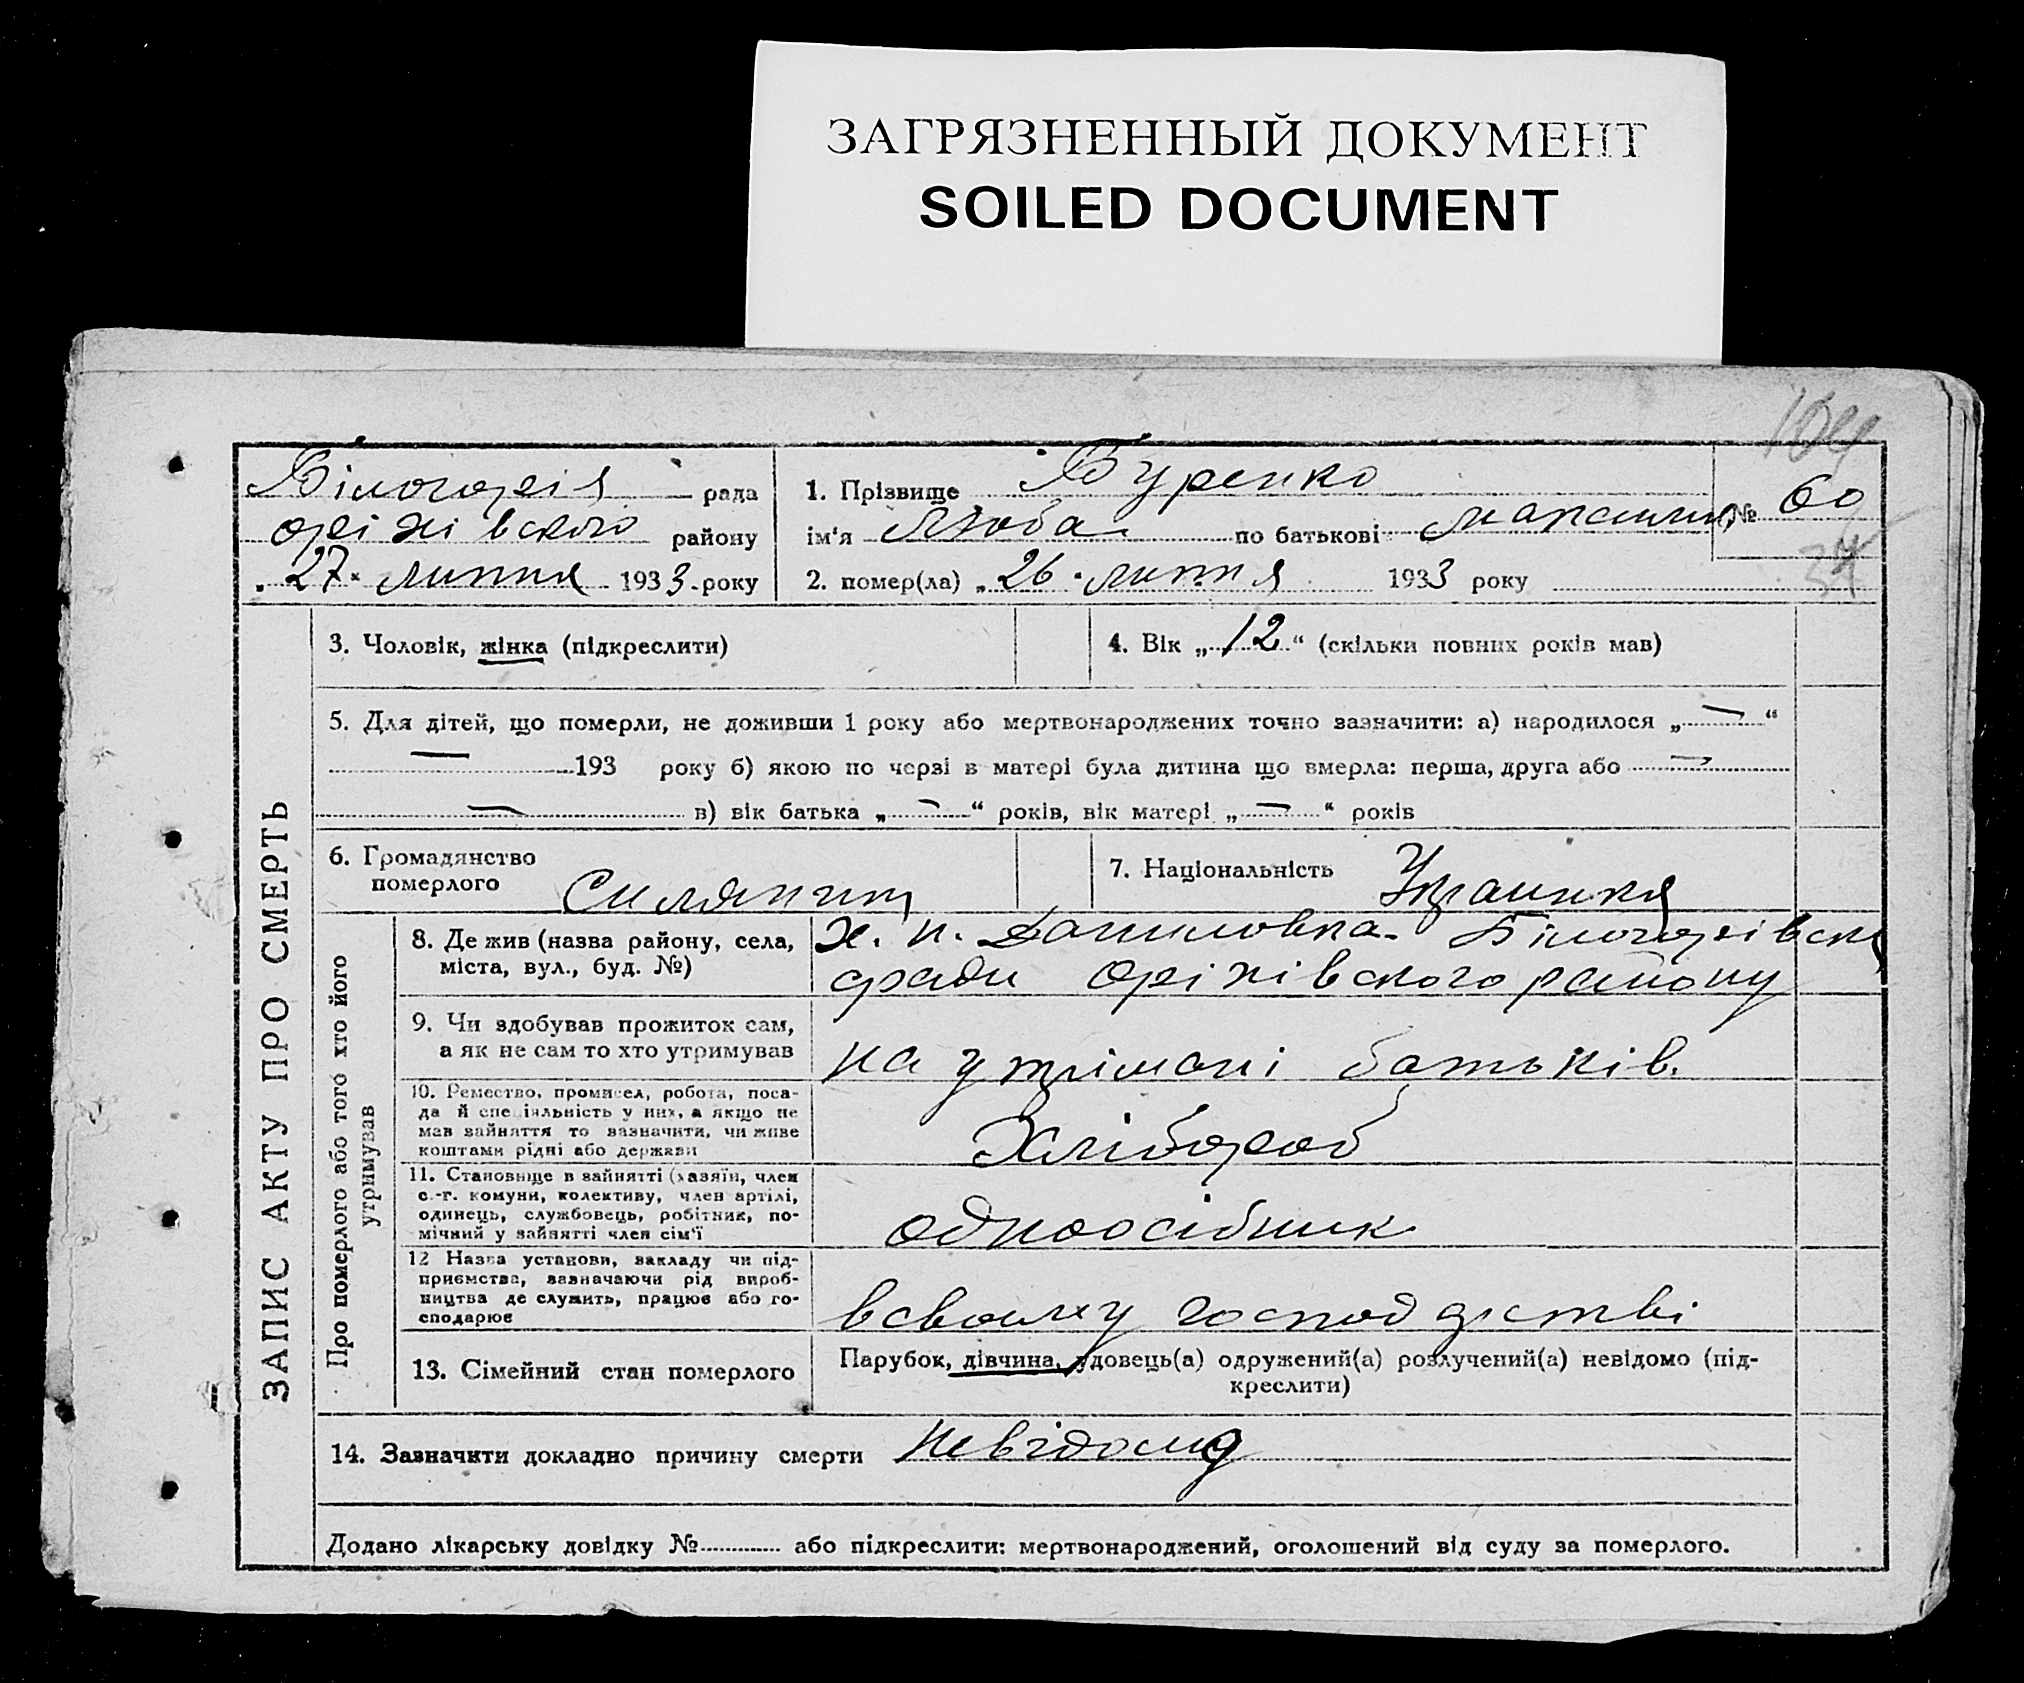 ЗАГРЯЗНЕННЫЙ ДОКУМЕНТ
SOILED DOCUMENT
104
Білогорія рада
оріхівского району
„27" липня 1933 року
1. Прізвище Буренко
№ 60
ім'я Люба по батькові
2. помер(ла) „26" липня 1933 року
ЗАПИС АКТУ ПРО СМЕРТЬ
3. Чоловік, жінка (підкреслити)
4. Вік „12" (скільки повних років мав)
5. Для дітей, що померли, не доживши 1 року або мертвонароджених точно зазначити: а) народилося „—"
— 193 року б) якою по черзі в матері була дитина що вмерла: перша, друга або —
— в) вік батька „—" років, вік матері „—" років
6. Громадянство
померлого
7. Національність
Про померлого або того хто його
утримував
8. Де жив (назва району, села,
міста, вул., буд. №)
х. н. Даниловка. Білогорівск
ради оріхівского району
9. Чи здобував прожиток сам,
а як не сам то хто утримував
на утрімані батьків.
10. Ремество, промисел, робота, поса-
да й спеціяльність у них, а якщо не
мав зайняття то зазначити, чи живе
коштами рідні або держави
Хлібороб
11. Становище в зайнятті (хазяїн, член
с.-г. комуни, колективу, член артілі,
одинець, службовець, робітник, по-
мічний у зайнятті член сім'ї
одноосібник
12 Назва установи, закладу чи під-
приємства, зазначаючи рід вироб-
ництва де служить, працює або го-
сподарює
в своиму господрстві
13. Сімейний стан померлого
Парубок, дівчина, удовець(а) одружений(а) розлучений(а) невідомо (під-
креслити)
14. Зазначити докладно причину смерти невідома
Додано лікарську довідку № або підкреслити: мертвонароджений, оголошений від суду за померлого.